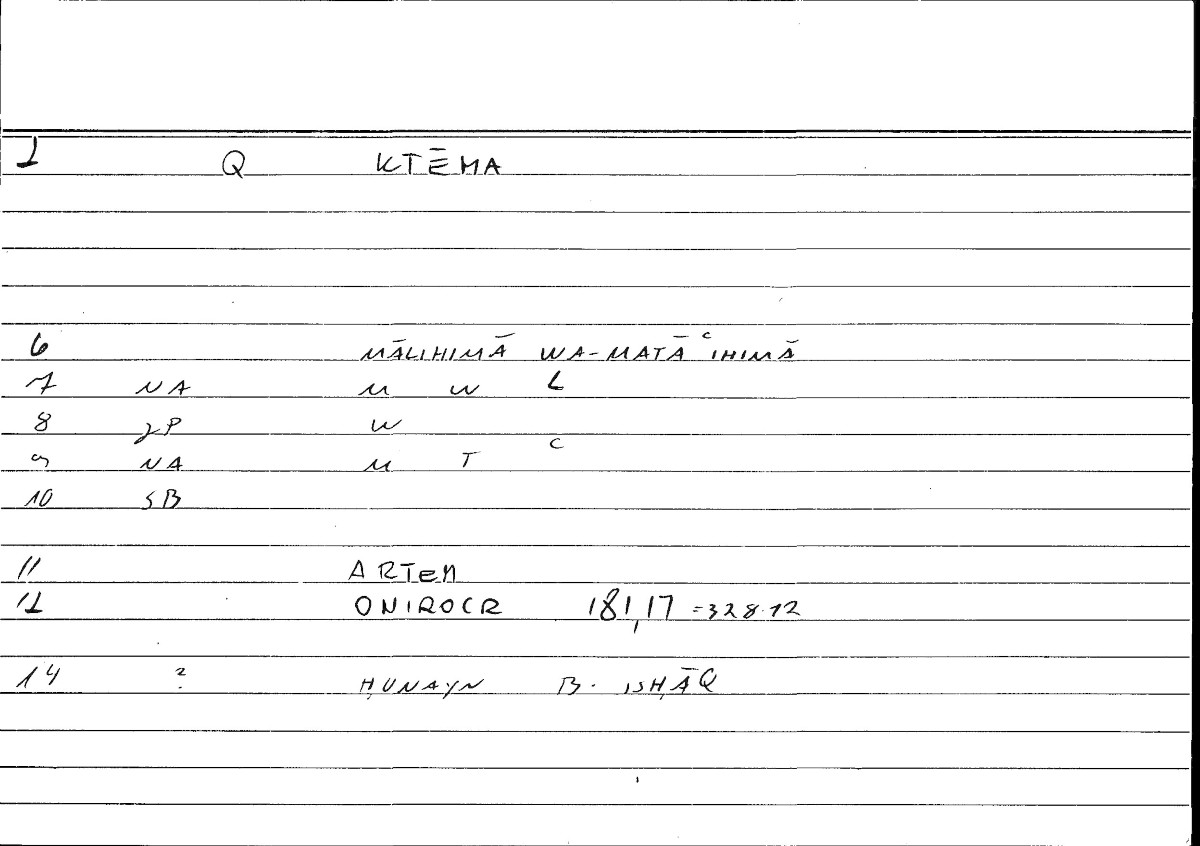 1 Q KTĒMA
6 MĀLIHIMĀ WA-MATĀʿIHIMĀ
7 NA M W L
8 2P W
9 NA M T C
10 SB
11 ARTEM
12 ONIROCR 181,17 =328.12
14 ? ḤUNAYN B. ISḤĀQ